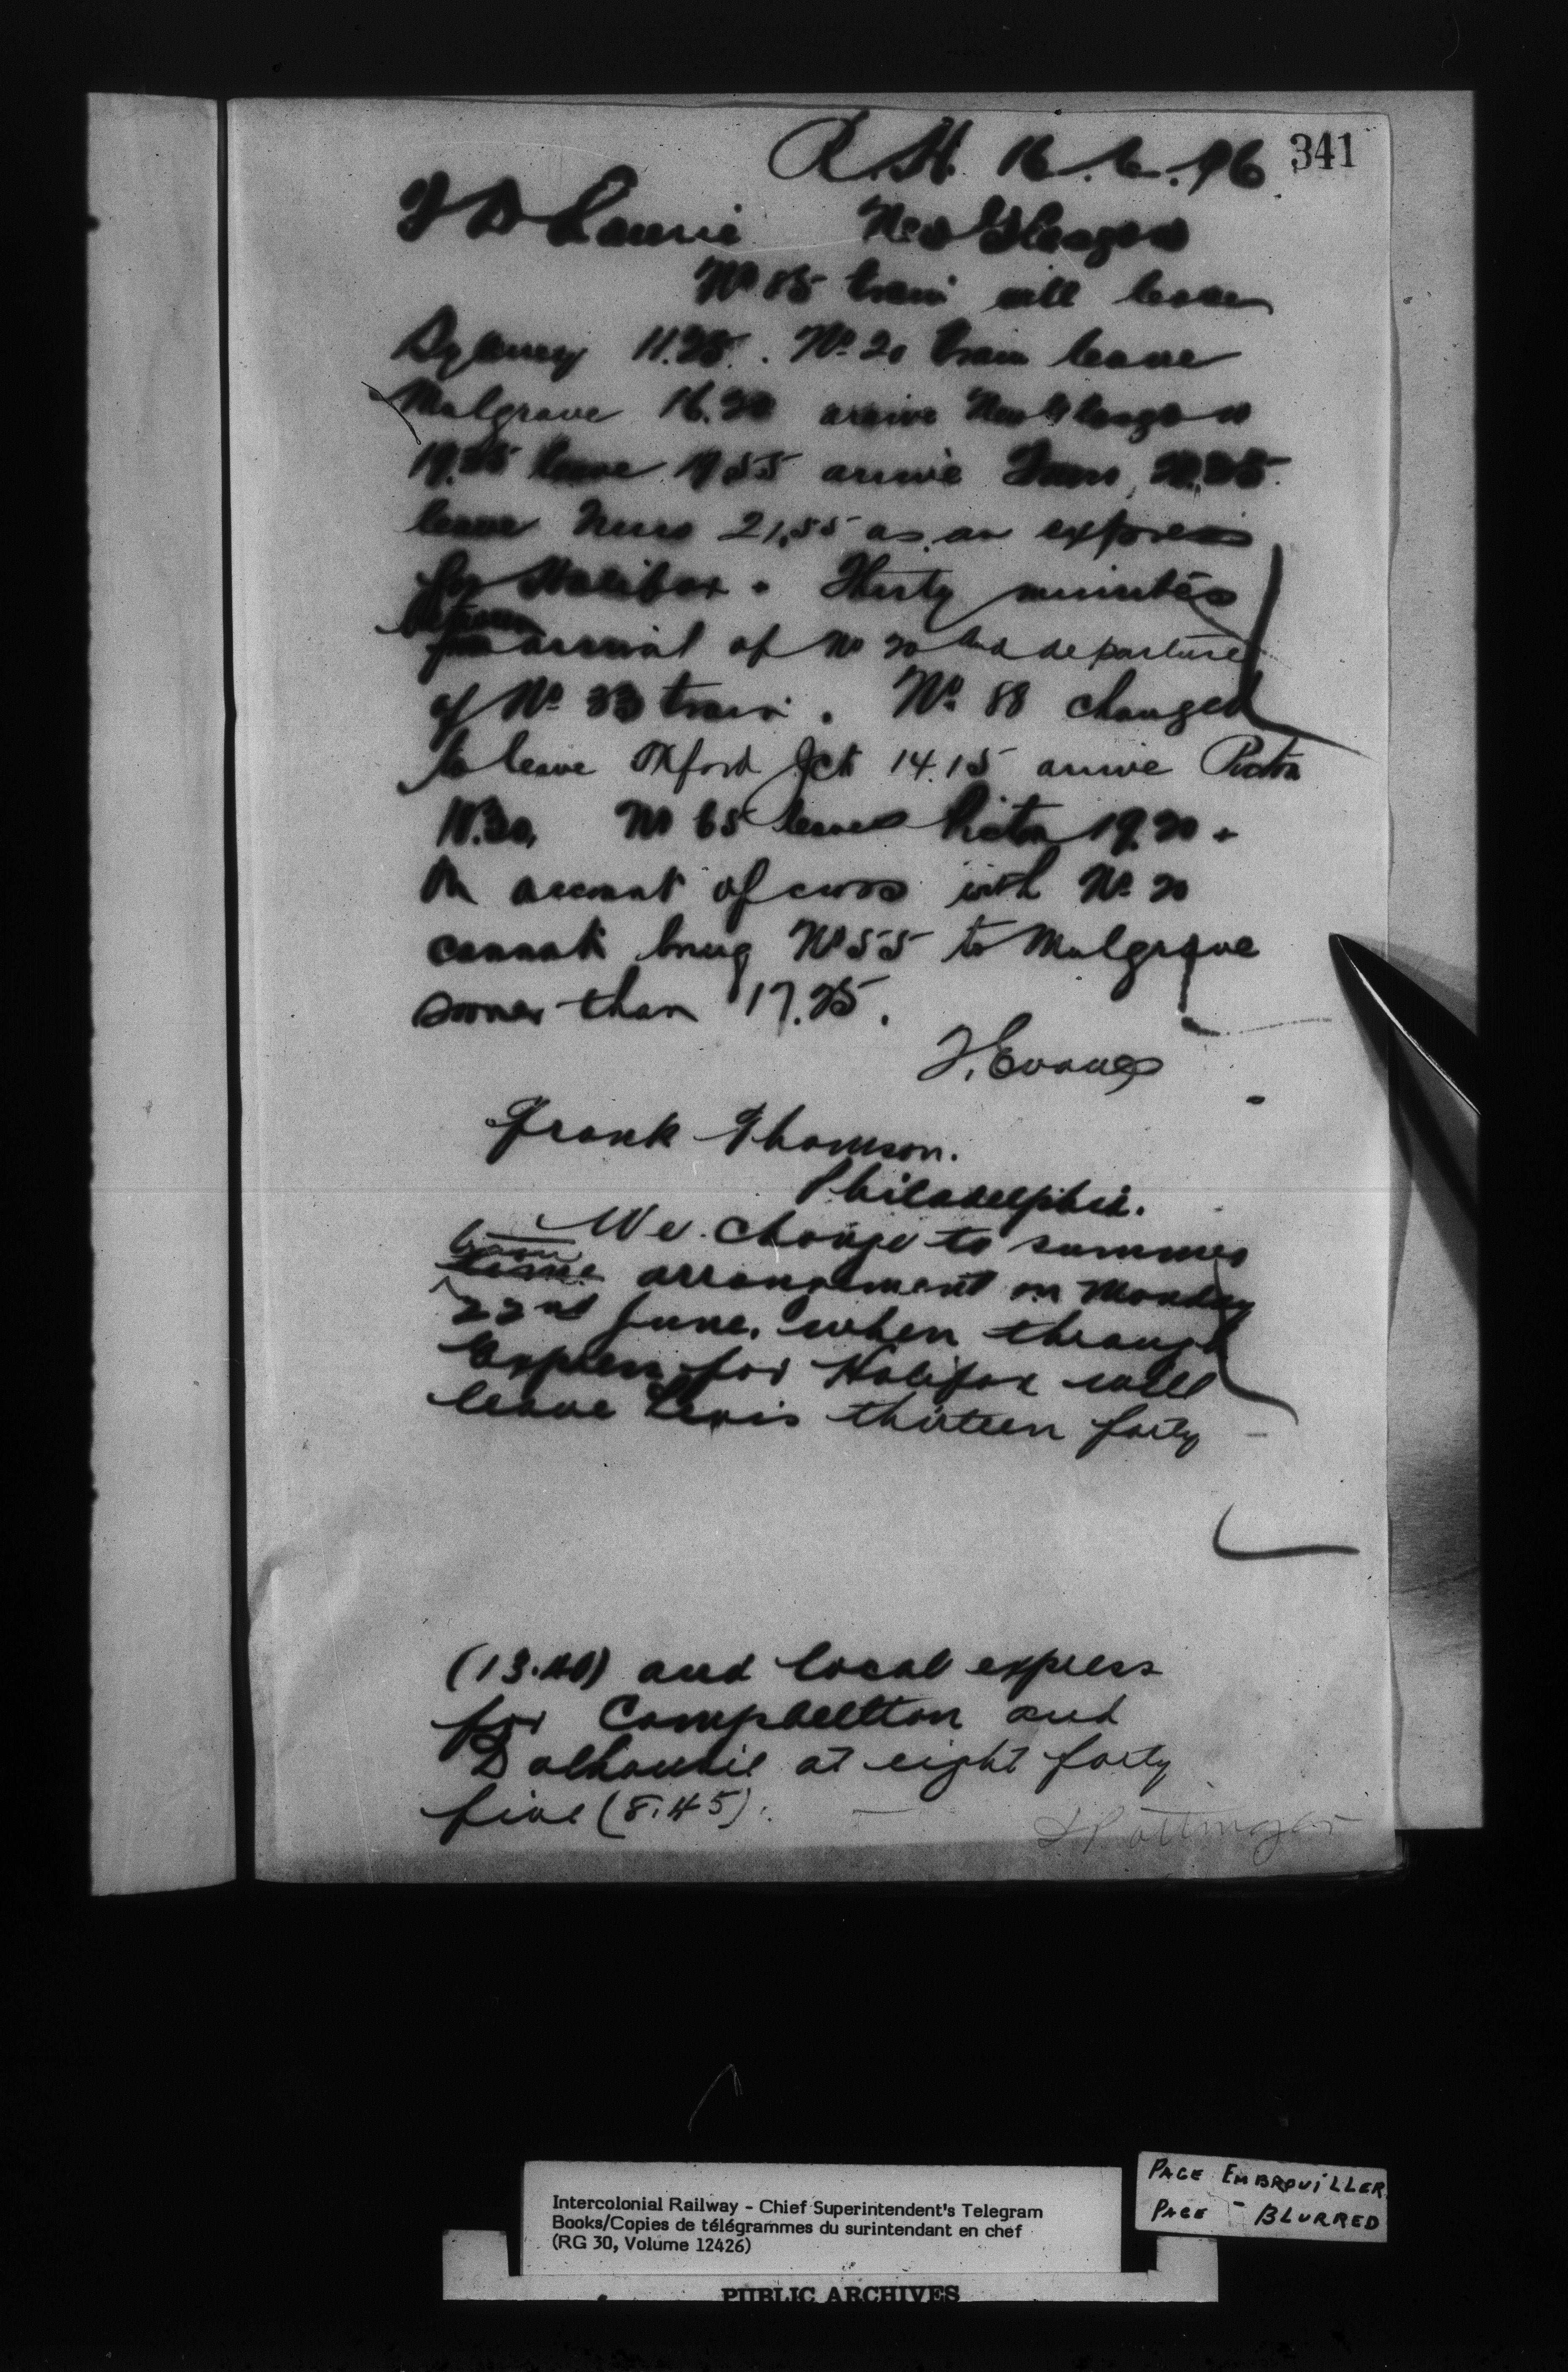 341
R.H. 16.6.96
New Glasgow
No 85 train will leave
Sydney 11.25. No 20 train leave
Mulgrave 16.20 arrive New Glasgow
leave 19 55 arrive Truro
leave Truro 21.55 as an express
for Halifax. Thirty minutes
between
arrival of No 20 and departure
of No 33 train. No 88 changed
to leave Oxford Jct 14.15 arrive Pictou
No 65 leaves Pictou 19.20.
On account of cross with No 20
cannot bring No 55 to Mulgrave
sooner than 17.25.
Evans
Frank Thomson.
Philadelphia.
We change to summer
train
time arrangement on Monday
22nd June, when through
Express for Halifax will
leave Levis thirteen forty
(13.40) and local express
for Campbellton and
Dalhousie at eight forty
five (8.45).
D Pottinger
Intercolonial Railway - Chief Superintendent's Telegram
Books/Copies de télégrammes du surintendant en chef
(RG 30, Volume 12426)
PAGE EMBROUILLER
PAGE - BLURRED
PUBLIC ARCHIVES